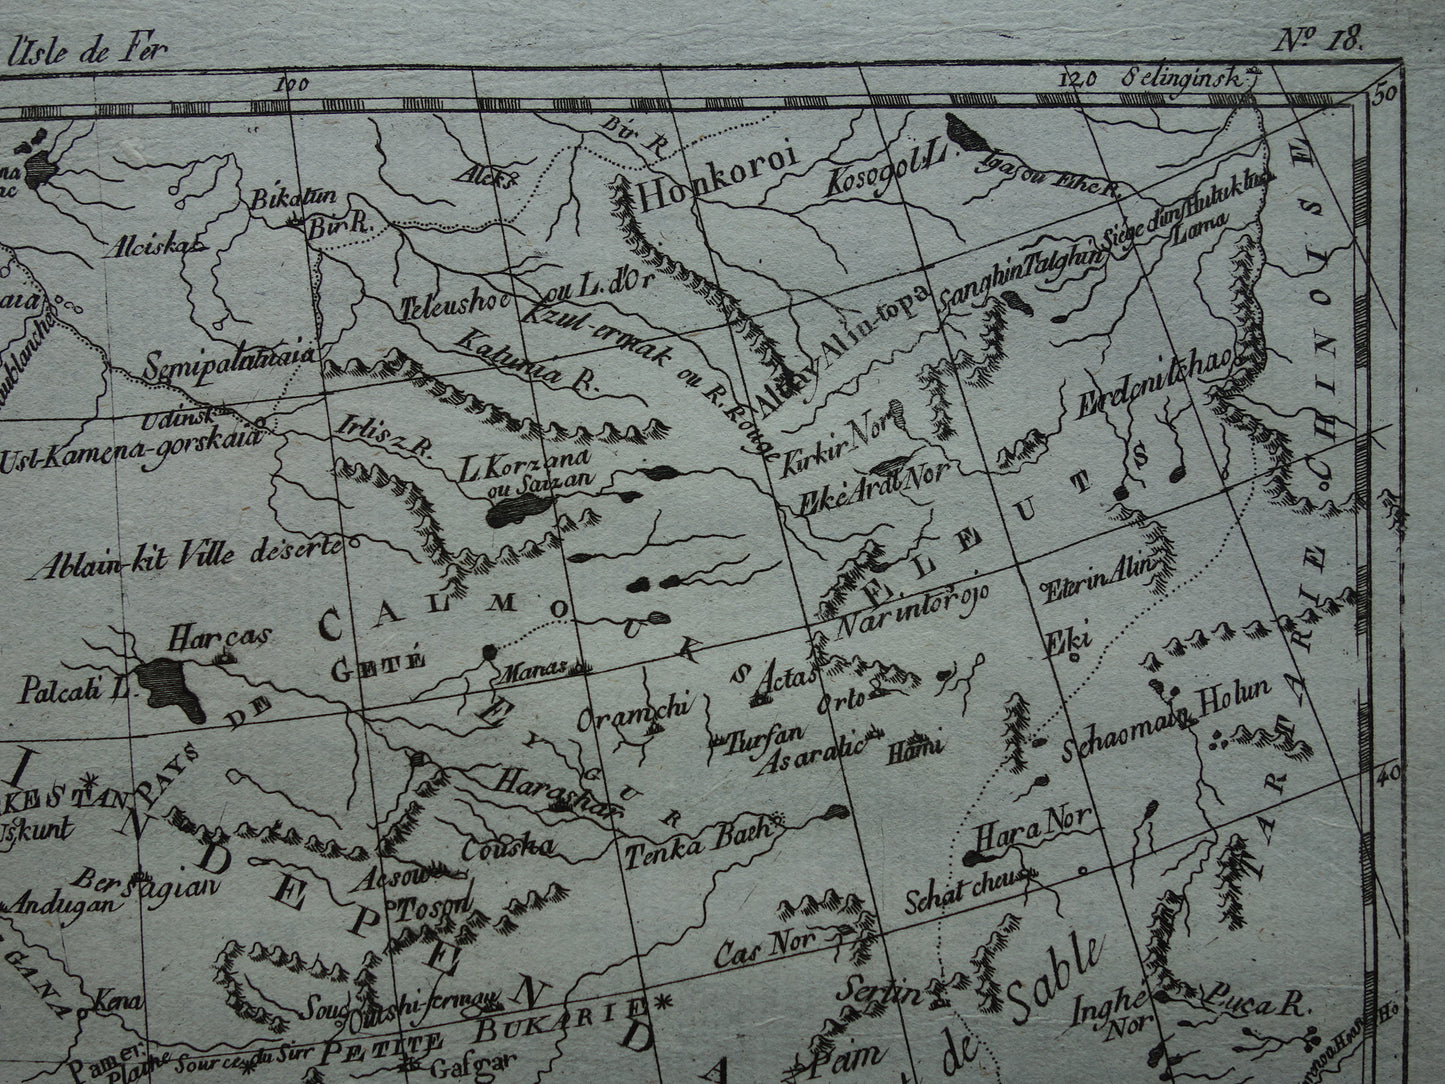 l'Isle de Fer
Nº 18.
100
120
Selinginsk
50
Bir R.
Honkoroi
Kosogol L.
Igasou Eihe R.
Aleks
Bikatun
Bir R.
Alciskai
Siege d'un Hutuktu
Lama
Sanghin Talghin
Teleushoe ou L. d'Or
Kzul-ermak ou R. Rouge
Katunia R.
Altay Alin-topa
Semipalatnaia
Udinsk
Ust-Kamena-gorskaia
Irlisz R.
L Korzana
ou Saizan
Kirkir Nor
Eke Aral Nor
Erdenitchao
CHINOISE
TARTARIE
Ablain-kit Ville déserte
CALMOUKS
ELEUTS
Eterin Alin
Narintorojo
Eki
Harcas
GETÉ
Palcati L.
Manas
Actas
Orto
Oramchi
Turfan
Asaralic
Hami
Schaomain Holun
PAYS DE
EYGUR
Harashar
KESTAN
Uskunt
Cousha
Tenka Baeh
Hara Nor
40
Bersagian
Andugan
Acsou
Tosgd
Schatcheu
Cas Nor
I N D E P E N D A
GANA
Kena
Sertin
Sable
de
Inghe
Nor
Puca R.
Ho
Pamer.
Plaine
Source du Sirr
PETITE BUKARIE
Gasgar
Paim